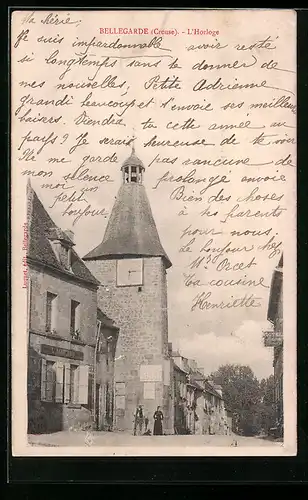 BELLEGARDE (Creuse). - L'Horloge
Ma chérie,
Je suis impardonnable avoir resté
si longtemps sans te donner de
mes nouvelles, Petite Adrienne
grandi beaucoup et t'envoie ses meilleurs
baisers. Viendra ta cette année au
pays? Je serais heureuse de te voir
Ne me garde pas rancune de
mon silence prolongé envoie
moi un petit toujour
Bien des choses
à tes parents
pour nous.
Le bonjour chez
Mr Orcet
Ta cousine
Henriette
édit. Bellegarde